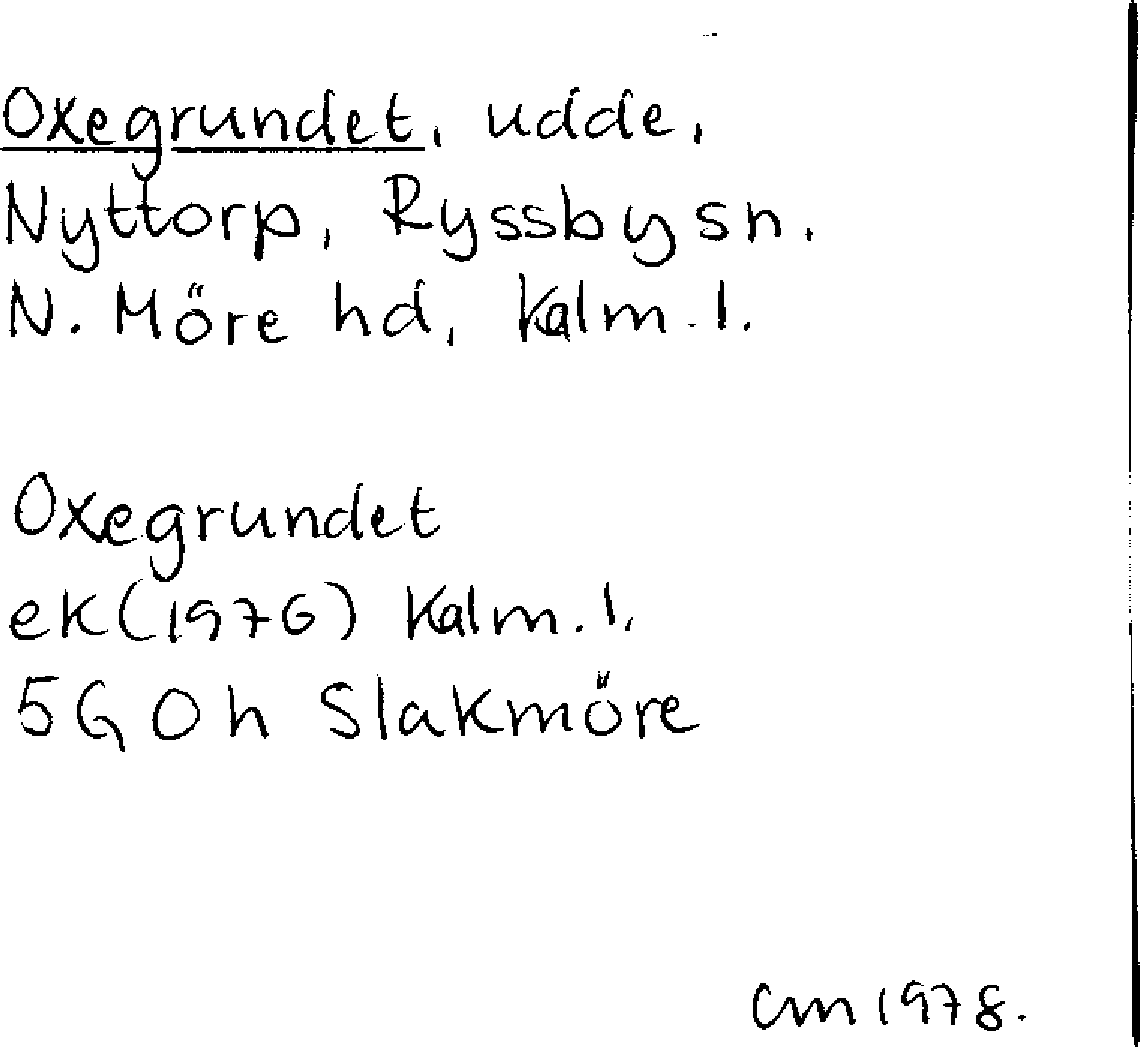 Oxegrundet, udde,
Nyttorp, Ryssby sn.
N. Möre hd, Kalm. l.
Oxegrundet
ek (1976) Kalm. l.
5G 0h Slakmöre
CM 1978.